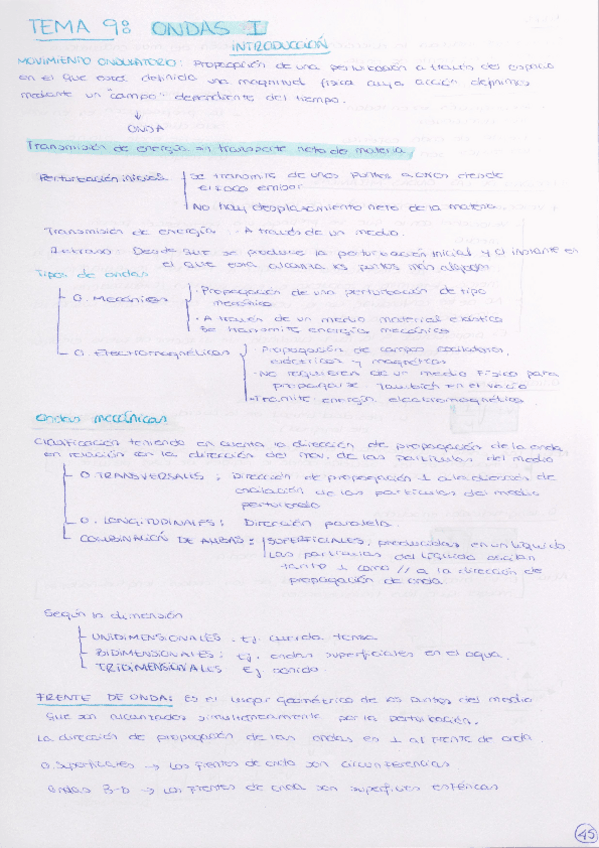 TEMA 9: ONDAS I
INTRODUCCIÓN
MOVIMIENTO ONDULATORIO: Propagación de una perturbación a través del espacio
en el que está definida una magnitud física cuya acción definimos
mediante un "campo" dependiente del tiempo.
↓
ONDA
Transmisión de energía sin transporte neto de materia
Perturbación inicial
Se transmite de unos puntos a otros desde
el foco emisor
No hay desplazamiento neto de la materia
Transmisión de energía: A través de un medio.
Retraso: Desde que se produce la perturbación inicial y el instante en
el que esta alcanza los puntos más alejados
Tipos de ondas
O. Mecánicas
· Propagación de una perturbación de tipo
mecánico
· A través de un medio material elástico
se transmite energía mecánica
O. Electromagnéticas
· Propagación de campos oscilatorios,
eléctricos y magnéticos
· No requieren de un medio físico para
propagarse también en el vacío
- Tramite energía electromagnética
Ondas mecánicas
Clasificación teniendo en cuenta la dirección de propagación de la onda,
en relación con la dirección del mov. de las partículas del medio
O. TRANSVERSALES: Dirección de propagación ⊥ a la dirección de
oscilación de las partículas del medio
perturbado
O. LONGITUDINALES: Dirección paralela.
COMBINACIÓN DE AMBAS: SUPERFICIALES, producidas en un líquido
Las partículas del líquido oscilan
tanto ⊥ como // a la dirección de
propagación de onda.
Según la dimensión
UNIDIMENSIONALES. Ej. cuerda tensa
BIDIMENSIONALES: Ej. ondas superficiales en el agua.
TRIDIMENSIONALES Ej. sonido.
FRENTE DE ONDA: Es el lugar geométrico de los puntos del medio
que son alcanzados simultáneamente por la perturbación.
La dirección de propagación de las ondas es ⊥ al frente de onda.
O. Superficiales → Los frentes de onda son circunferencias
Ondas 3-D → Los frentes de onda son superficies esféricas
45